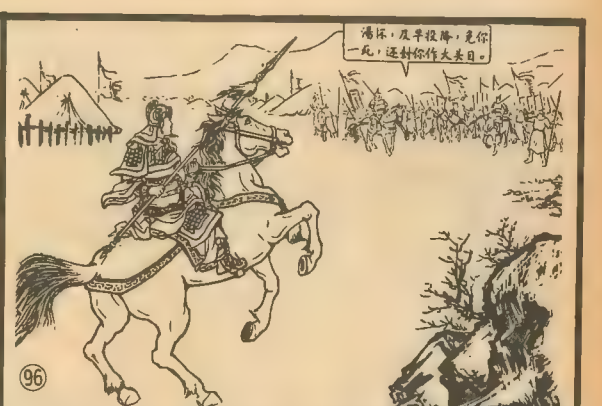 湯怀，及早投降，免你
一死，还封你作大头目。
96